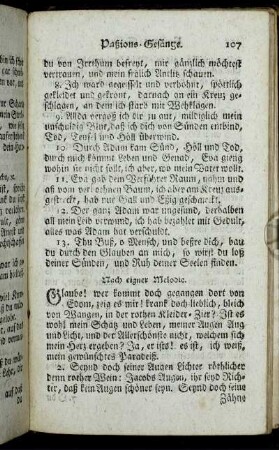 Paßions-Gesänge. 107
du von Irrthum befreyt, mir gäntzlich möchtest
vertrauen, und mein frölich Antlitz schauen.
8. Ich ward gegeisselt und verhöhnt, spöttlich
gekleidet und gekrönt, darnach an ein Kreuz ge-
schlagen, an dem ich starb mit Wehklagen.
9. Allda vergoß ich dir zu gut, mildiglich mein
unschuldig Blut, daß ich dich von Sünden entbind,
Tod, Teufel und Höll überwind.
10. Durch Adam kam Sünd, Höll und Tod,
durch mich kömmt Leben und Genad, Eva gieng
wohin sie nicht soll, ich aber, wo mein Vater wollt.
11. Eva gab dem Versühret Raum, nahm und
aß vom verbothnen Baum, ich aber am Kreuz aus-
gestreckt, hab nur Gall und Eßig geschmeckt.
12. Der ganz Adam war ungesund, derhalben
all mein Leib verwundt, ich hab bezahlet mit Gedult,
alles was Adam hat verschuldt.
13. Thu Buß, o Mensch, und beßre dich, hau
du durch den Glauben in mich, so wirst du loß
deiner Sünden, und Ruh deiner Seelen finden.
Nach eigner Melodie.
Glaube! wer kommt doch gegangen dort von
Edom, zeig es mir! krank doch lieblich, bleich
von Wangen, in der rothen Kleider-Zier? Ist es
wohl mein Schatz und Leben, meiner Augen Aug
und Licht, und der Allerschönste nicht, welchem sich
mein Herz ergeben? Ja, er ists! es ist, ich weiß,
mein gewünschtes Paradeiß.
2. Seynd doch seiner Augen Lichter röthlicher
denn rother Wein: Jacobs Augen, ihr seyd Rich-
ter, daß kein Augen schöner seyn. Seynd doch seine
Zähne